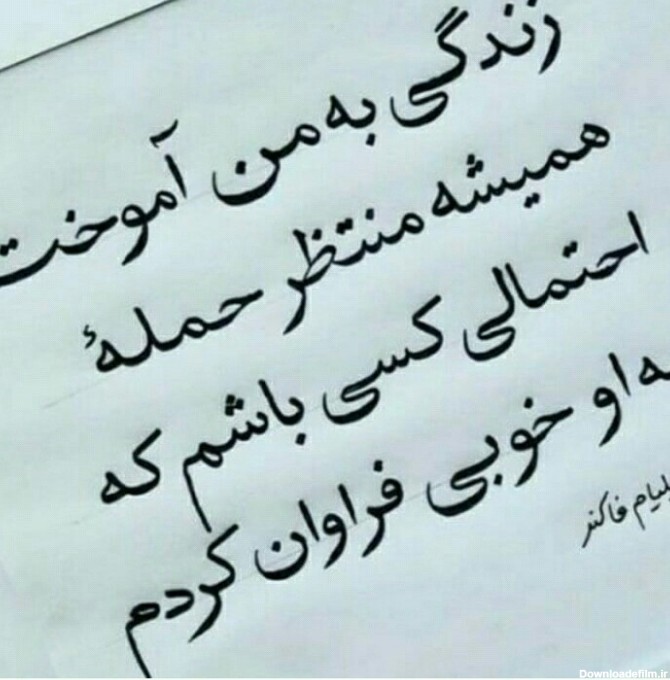 زندگی به من آموخت
همیشه منتظر حملهٔ
احتمالی کسی باشم که
به او خوبی فراوان کردم
فاکنر
Downloadefilm.ir